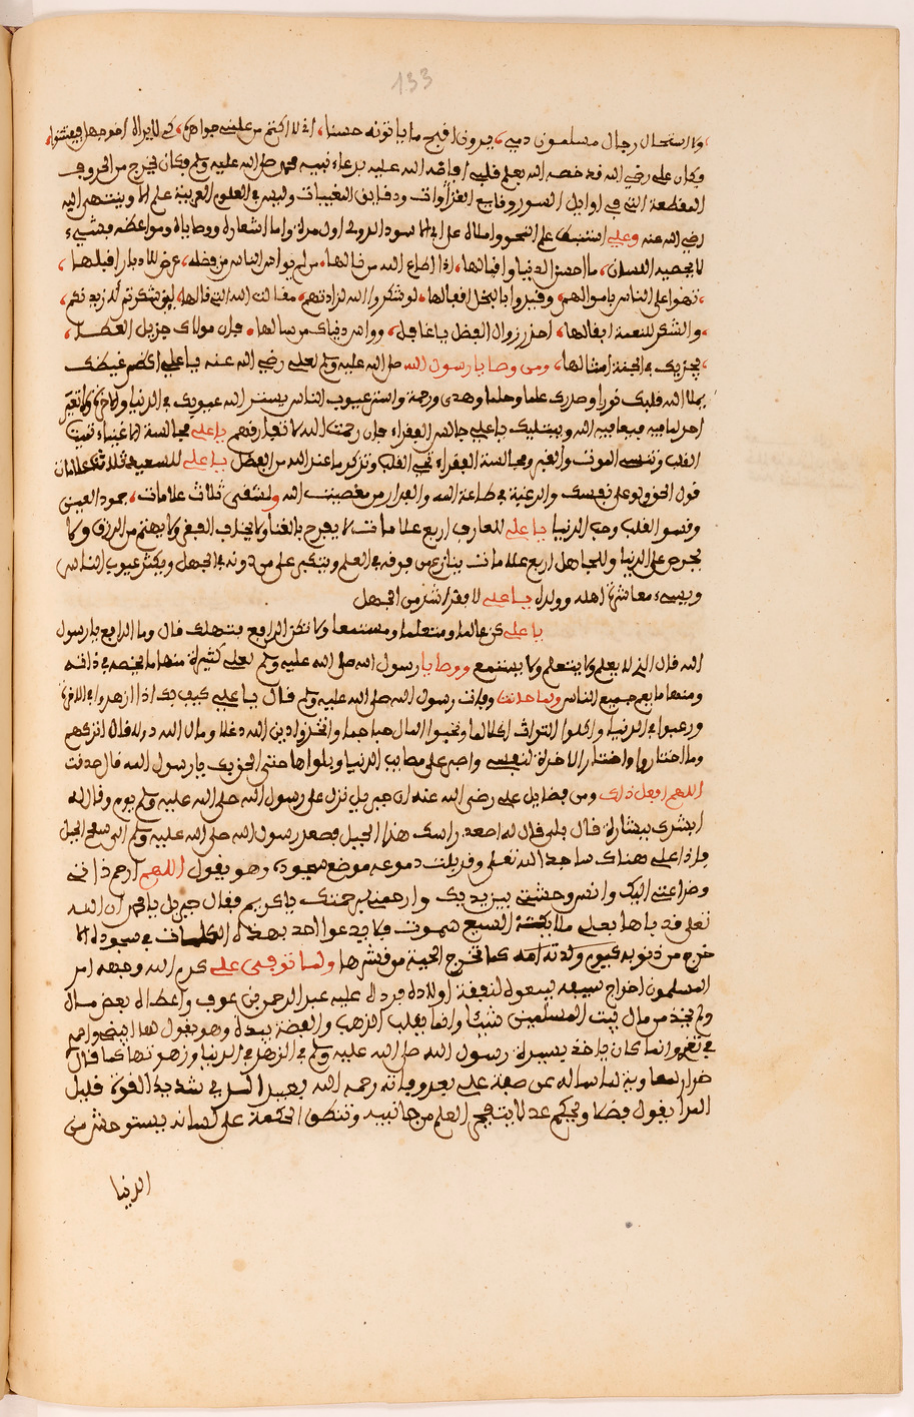 133
ولاستحل رجال مسلمون دمي، يرون اقبح ما ياتونه حسنا، اني لاكتم من علمي جواهره، كي لا يرا
وكان علي رضي الله قد خصه الله بعلم قلبي افاضه الله عليه بدعاء نبيه محمد صلى الله عليه وسلم وكان يخرج من الحروف
المقطعة التي في اوايل السور وقايع ودقايق المغيبات وليه في العلوم العربية علم
رضي الله عنه وعلي استنبط علم النحو واملاه على ابي الاسود الدولي اول مرة واما اشعاره ووصاياه ومواعظه فشيء
لا يحصيه اللسان، ما احسن الدنيا واقبالها، اذا اطاع الله من نالها، من لم يواس الناس من فضله، عرض للادبار اقبالها،
تهوا على الناس باموالهم، وقيدوا بالبخل افعالها، لو شكروا الله لزادتهم، مقالة الله التي قالها، لين شكرتم لازيدنكم،
والشكر للنعمة ابقالها، احذر زوال الفضل يا غافل، وواس دنياك من سالها، فان مولاك جزيل العطا،
يجزيك في الجنة امثالها، ومن وصايا رسول الله صلى الله عليه وسلم لعلي رضي الله عنه يا علي اكظم غيظك
يملا الله قلبك نورا وصدرك علما وحلما وهدى ورحمة واستر عيوب الناس يستر الله عيوبك في الدنيا والاخرة ولا تعير
احدا بما فيه فيعافيه الله ويبتليك يا علي جالس الفقراء فان رحمت الله لا تفارقهم يا علي مجالسة الاغنياء تميت
القلب وتنسي الموت والقبر ومجالسة الفقراء تحي القلب وتذكر ما عند الله من الفضل يا علي للسعيد ثلاث علامات
قول الحق ولو على نفسك والرغبة في طاعة الله والفرار من معصيت الله ولشقي ثلاث علامات، جمود العين
وقسو القلب وحب الدنيا يا علي للعارف اربع علامات لا يفرح بالغنا ولا يخاف الفقر ولا يهتم من الرزق ولا
يحرص على الدنيا وللجاهل اربع علامات ينازع من فوقه في العلم ويتكبر على من دونه في الجهل ويكثر عيوب الناس
ويسيء معاشرة اهله وولده يا علي لا فقر اشد من الجهل
يا علي كن عالما ومتعلما ومستمعا ولا تكن الرابع فتهلك قال وما الرابع يا رسول
الله قال الذي لا يعلم ولا يتعلم ولا يستمع ووصايا رسول الله صلى الله عليه وسلم لعلي كثيرة منها ما يخصه في ذاته
ومنها ما يعم جميع الناس ولما حانت وفات رسول الله صلى الله عليه وسلم قال يا علي كيف بك اذا ازهدوا في الاخرة
ورغبوا في الدنيا واكلوا التراث اكلا لما وتحبوا المال حبا جما واتخذوا دين الله دغلا ومال الله دولا قال اتركهم
وما اختاروا واختار الاخرة لنفسي واصبر على مصايب الدنيا وبلواها حتى الحق بك يا رسول الله قال صدقت
اللهم افعل ذلك ومن فضايل علي رضي الله عنه ان جبريل نزل على رسول الله صلى الله عليه وسلم يوم وقال له
ابشرك ببشارة قال بلى قال له اصعد راسك هذا الجبل فصعد رسول الله صلى الله عليه وسلم الى سفح الجبل
فاذا علي هناك ساجد الله تعلى وقد بلت دموعه موضع سجوده وهو يقول اللهم ارحم ذلي
وضراعتي اليك وانس وحشتي بين يديك وارحمني برحمتك يا كريم فقال جبريل يا محمد ان الله
تعلى قد باها بعلي ملايكة السبع سموت فلا يدعوا احد بهذه الكلمات في سجوده الا
خرج من ذنوبه كيوم ولدته امه كما تخرج الحية من قشرها ولما توفى علي كرم الله وجهه امر
المسلمون اخراج سيفه ليبيعوه لنفقة اولاده فرده عليه عبد الرحمن بن عوف واعطاه بعض مال
ولم يخذ من مال بيت المسلمين شيئا وانما يقلب الذهب والفضة بيده وهو يقول لها ابيضي واحمري
في تغيري وانما كان ياخذ بسيرة رسول الله صلى الله عليه وسلم في الزهد في الدنيا وزهرتها كما قال
ضرار لمعاوية لما ساله عن صفة علي بعد وفاته رحمه الله بعيد السر في شديد القوة قليل
المرا يقول فضلا ويحكم عدلا يتفجر العلم من جانبيه وتنطق الحكمة على لسانه يستوحش من
الدنيا